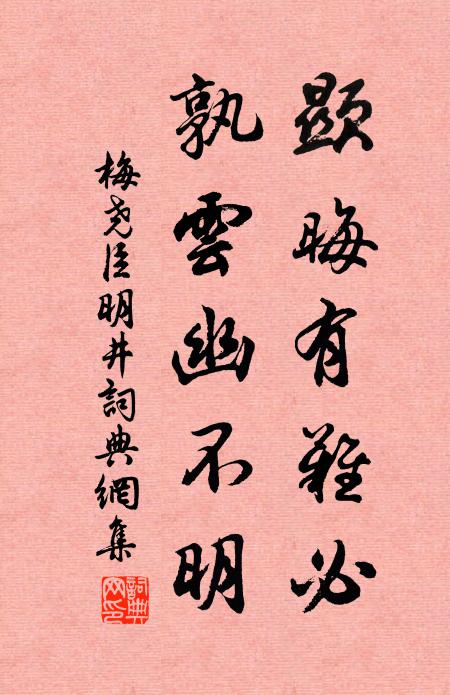 顯晦有難必
孰雲幽不明
梅堯臣明井詞典網集
詞典網印